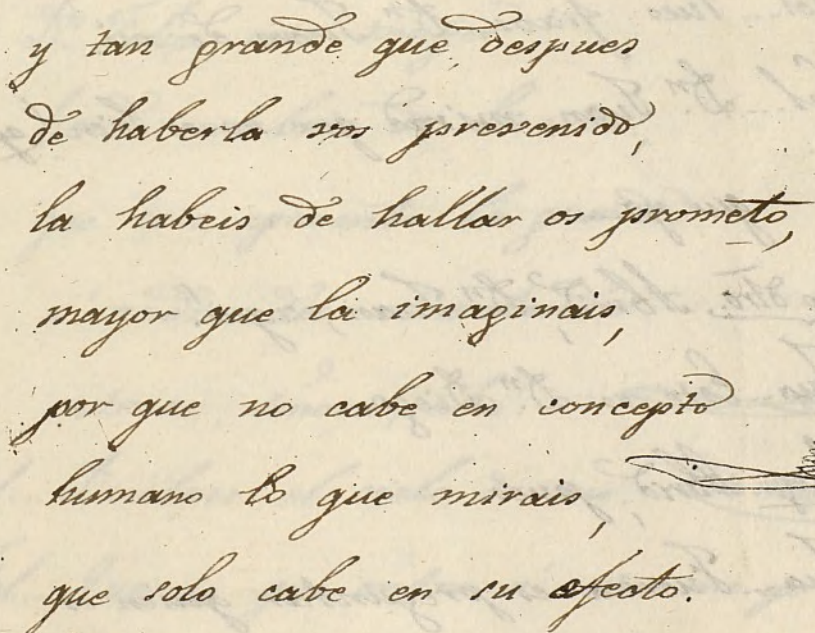 y tan grande que, despues
de haberla vos prevenido,
la habeis de hallar os prometo,
mayor que la imaginais,
por que no cabe en concepto
humano lo que mirais,
que solo cabe en su efecto.